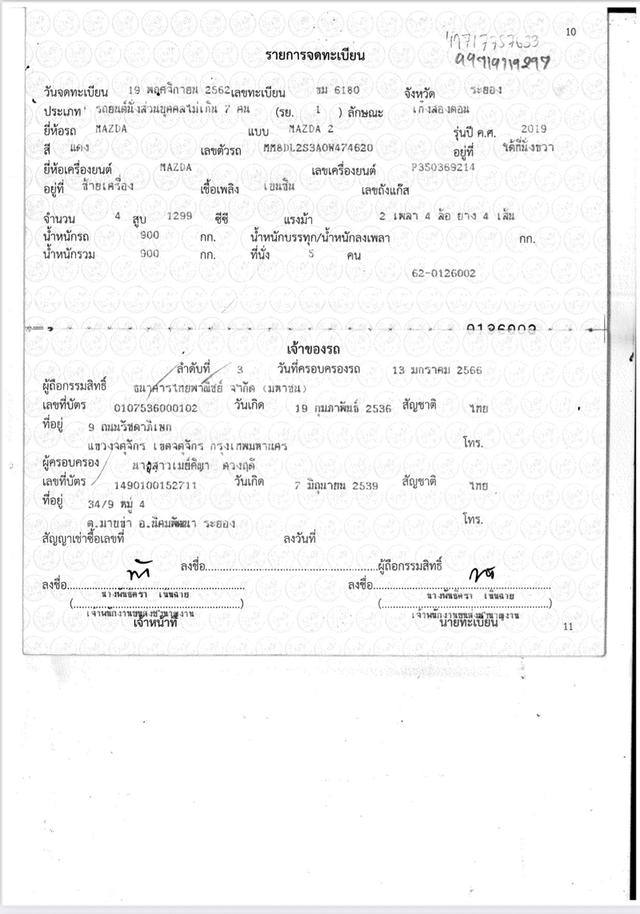 10
รายการจดทะเบียน
วันจดทะเบียน 19 พฤศจิกายน 2562 เลขทะเบียน ขม 6180 จังหวัด ระยอง
ประเภท รถยนต์นั่งส่วนบุคคลไม่เกิน 7 คน (รย. 1 ) ลักษณะ เก๋งสองตอน
ยี่ห้อรถ MAZDA แบบ MAZDA 2 รุ่นปี ค.ศ. 2019
สี แดง เลขตัวรถ MM8DL2S3A0W474620 อยู่ที่ ใต้ที่นั่งขวา
ยี่ห้อเครื่องยนต์ MAZDA เลขเครื่องยนต์ P3S0369214
อยู่ที่ ซ้ายเครื่อง เชื้อเพลิง เบนซิน เลขถังแก๊ส
จำนวน 4 สูบ 1299 ซีซี แรงม้า 2 เพลา 4 ล้อ ยาง 4 เส้น
น้ำหนักรถ 900 กก. น้ำหนักบรรทุก/น้ำหนักลงเพลา กก.
น้ำหนักรวม 900 กก. ที่นั่ง 5 คน
62-0126002
0126002
เจ้าของรถ
ลำดับที่ 3 วันที่ครอบครองรถ 13 มกราคม 2566
ผู้ถือกรรมสิทธิ์ ธนาคารไทยพาณิชย์ จำกัด (มหาชน)
เลขที่บัตร 0107536000102 วันเกิด 19 กุมภาพันธ์ 2536 สัญชาติ ไทย
ที่อยู่ 9 ถนนรัชดาภิเษก
แขวงจตุจักร เขตจตุจักร กรุงเทพมหานคร โทร.
ผู้ครอบครอง นางสาวเมย์ศิษา ดวงฤดี
เลขที่บัตร 1490100152711 วันเกิด 7 มิถุนายน 2539 สัญชาติ ไทย
ที่อยู่ 34/9 หมู่ 4
ต.มาบข่า อ.นิคมพัฒนา ระยอง โทร.
สัญญาเช่าซื้อเลขที่ ลงวันที่
ลงชื่อ ผู้ถือกรรมสิทธิ์
ลงชื่อ ลงชื่อ
เจ้าหน้าที่ นายทะเบียน
11